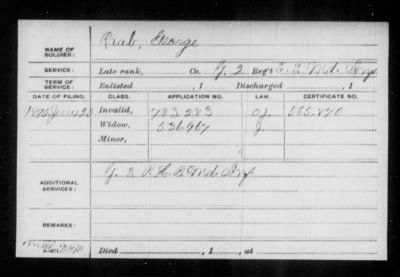 NAME OF SOLDIER: Raab, George
SERVICE: Late rank, Co. G 2 Reg't E. S. Md. Inf.
TERM OF SERVICE: Enlisted , 1 Discharged , 1
DATE OF FILING. CLASS. APPLICATION NO. LAW. CERTIFICATE NO.
June 23 Invalid, 783.283
Widow, 536.467
Minor,
ADDITIONAL SERVICES: G. 2 P. H. B. Md. Inf.
REMARKS:
Died , 1 , at